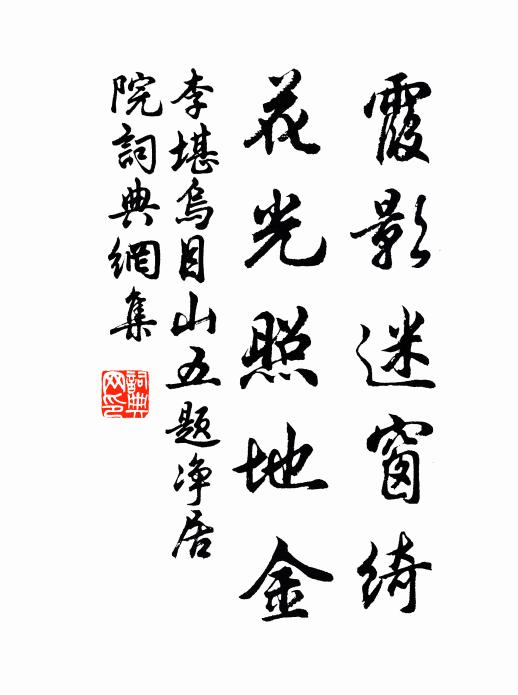 霞影迷窗绮
花光照地金
李堪烏目山五题净居
院詞典網集
詞典网印